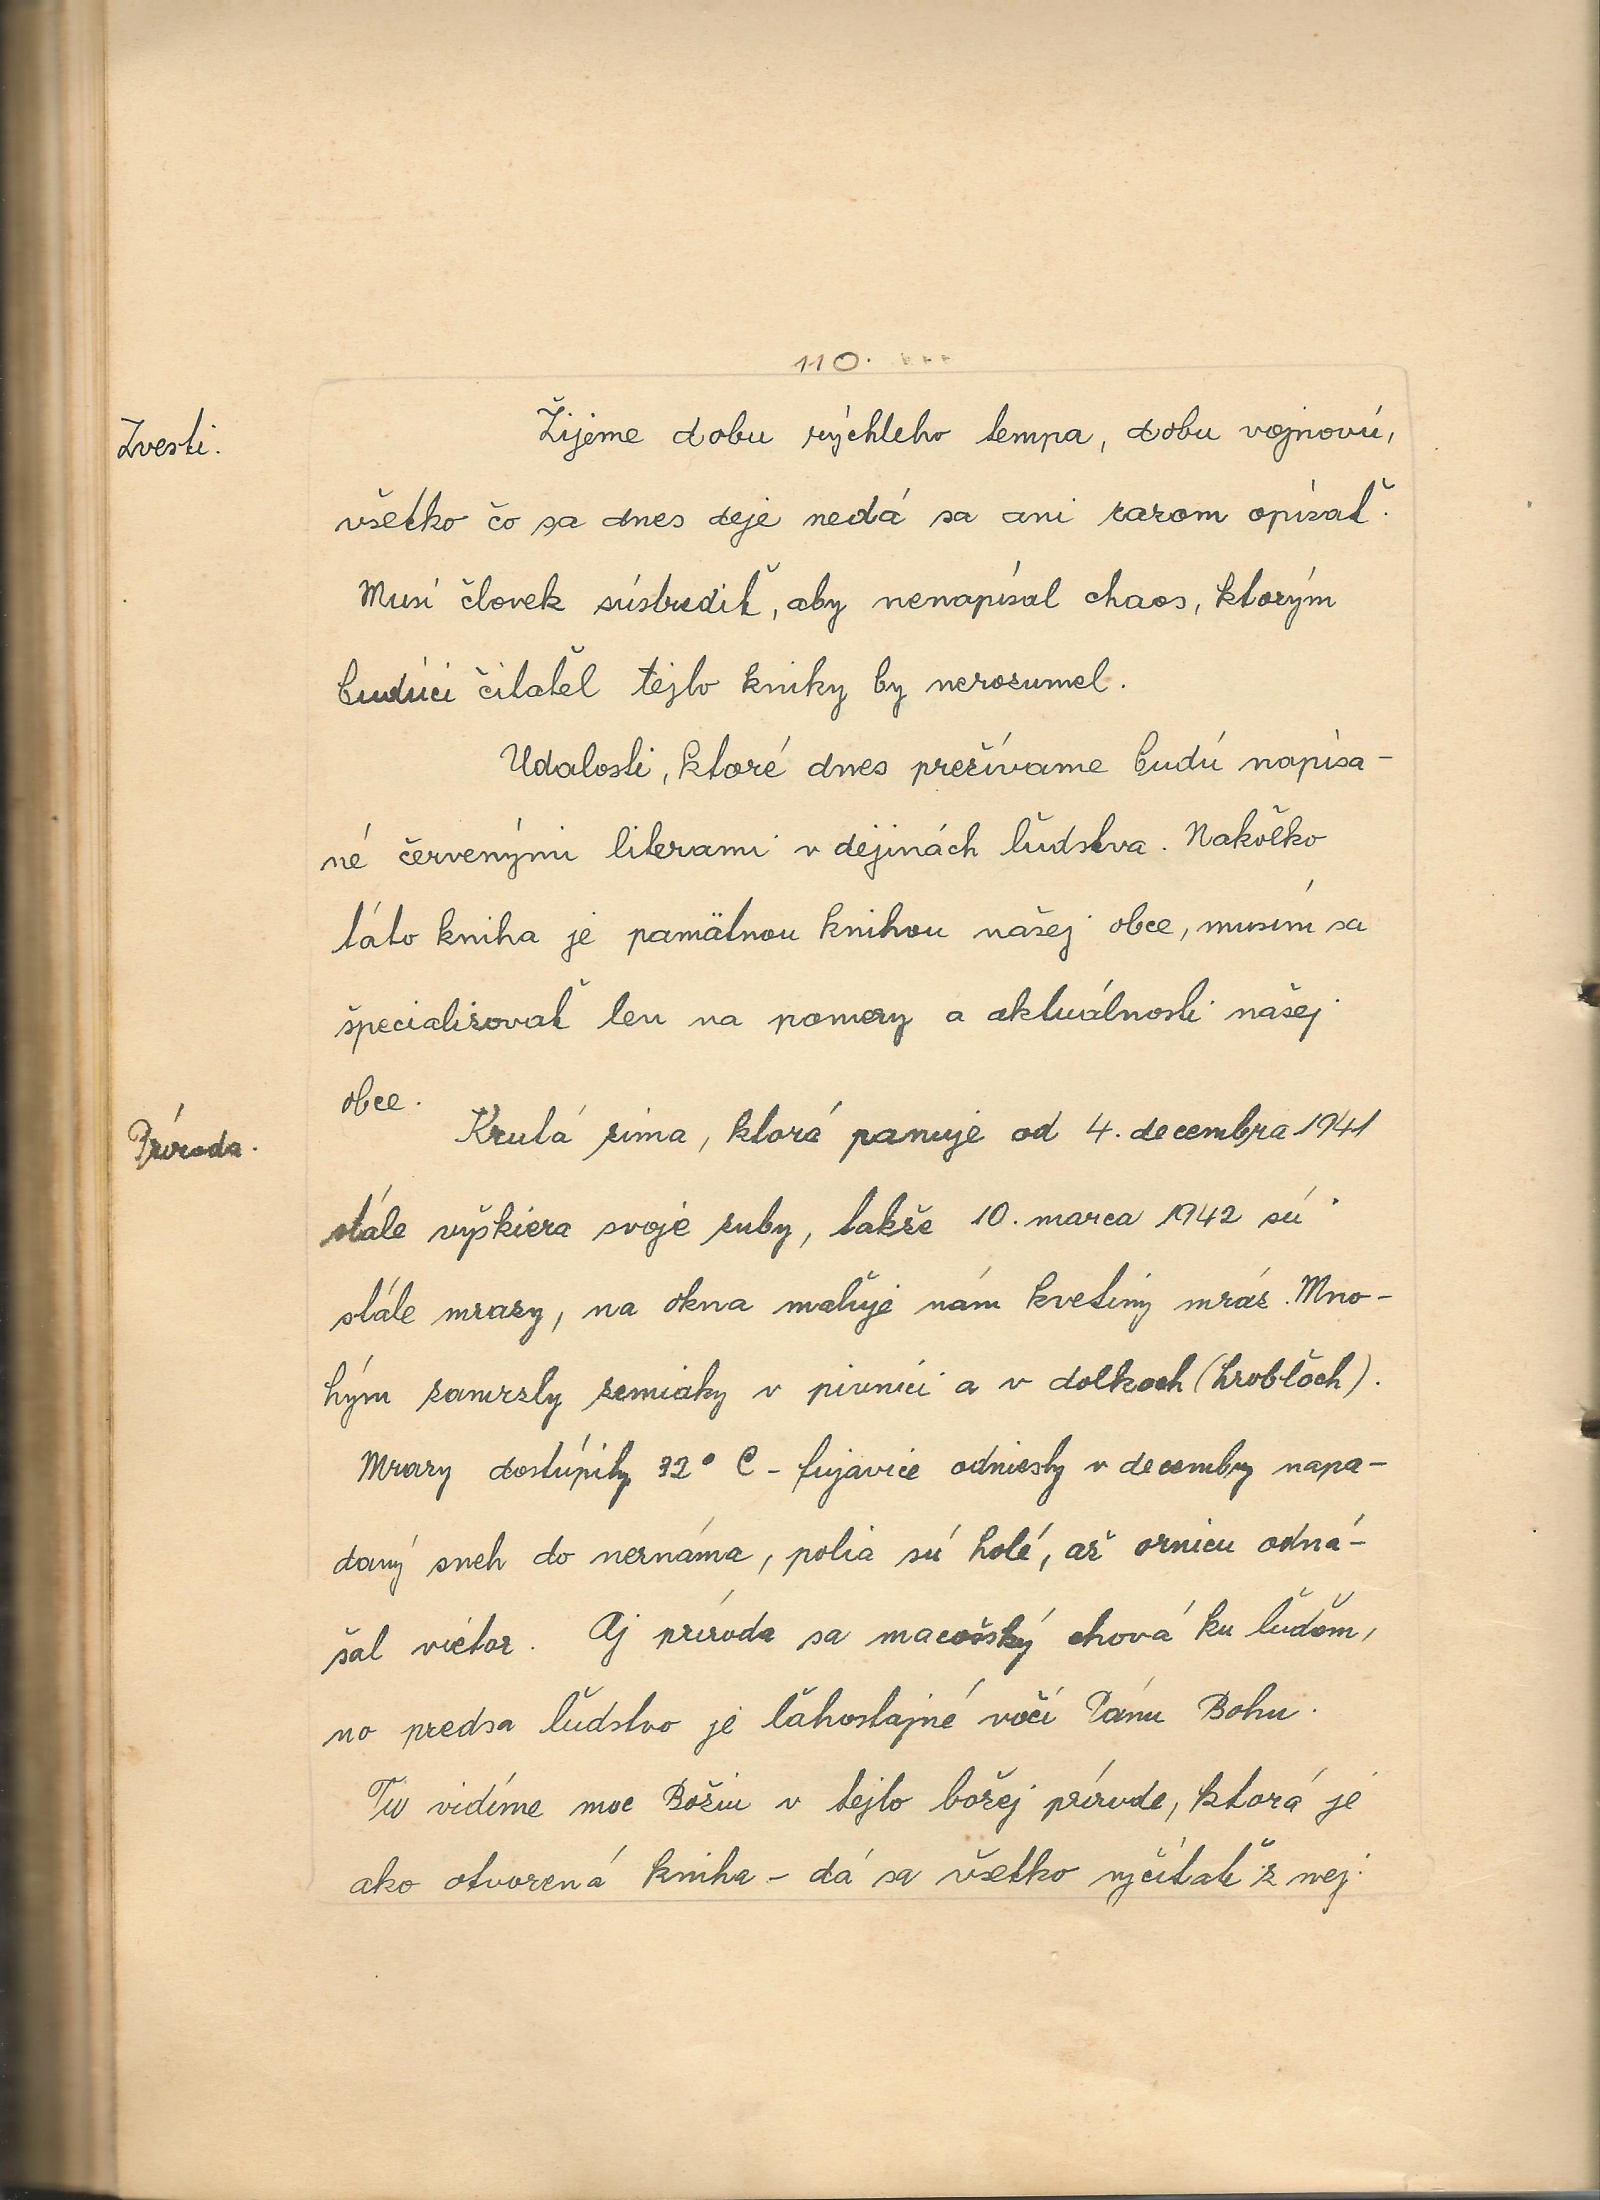 110.
Zvesti.
Žijeme dobu rýchleho tempa, dobu vojnovú,
všetko čo sa dnes deje nedá sa ani razom opísať.
Musí človek sústrediť, aby nenapísal chaos, ktorým
budúci čitateľ tejto knihy by nerozumel.
Udalosti, ktoré dnes prežívame budú napísa-
né červenými literami v dejinách ľudstva. Nakoľko
táto kniha je pamätnou knihou našej obce, musím sa
špecializovať len na pomery a aktuálnosti našej
obce.
Príroda.
Krutá zima, ktorá panuje od 4. decembra 1941
stále vyškiera svoje zuby, takže 10. marca 1942 sú
stále mrazy, na okna maľuje nám kvetiny mráz. Mno-
hým zamrzly zemiaky v pivnici a v dolkoch (hrobľoch).
Mrazy dostúpily 32° C - fujavice odniesly v decembry napa-
daný sneh do neznáma, polia sú holé, až ornicu odná-
šal vietor. Aj príroda sa macošský chová ku ľuďom,
no predsa ľudstvo je ľahostajné voči Pánu Bohu.
Tu vidíme moc Božiu v tejto božej prírode, ktorá je
ako otvorená kniha - dá sa všetko vyčítať z nej.